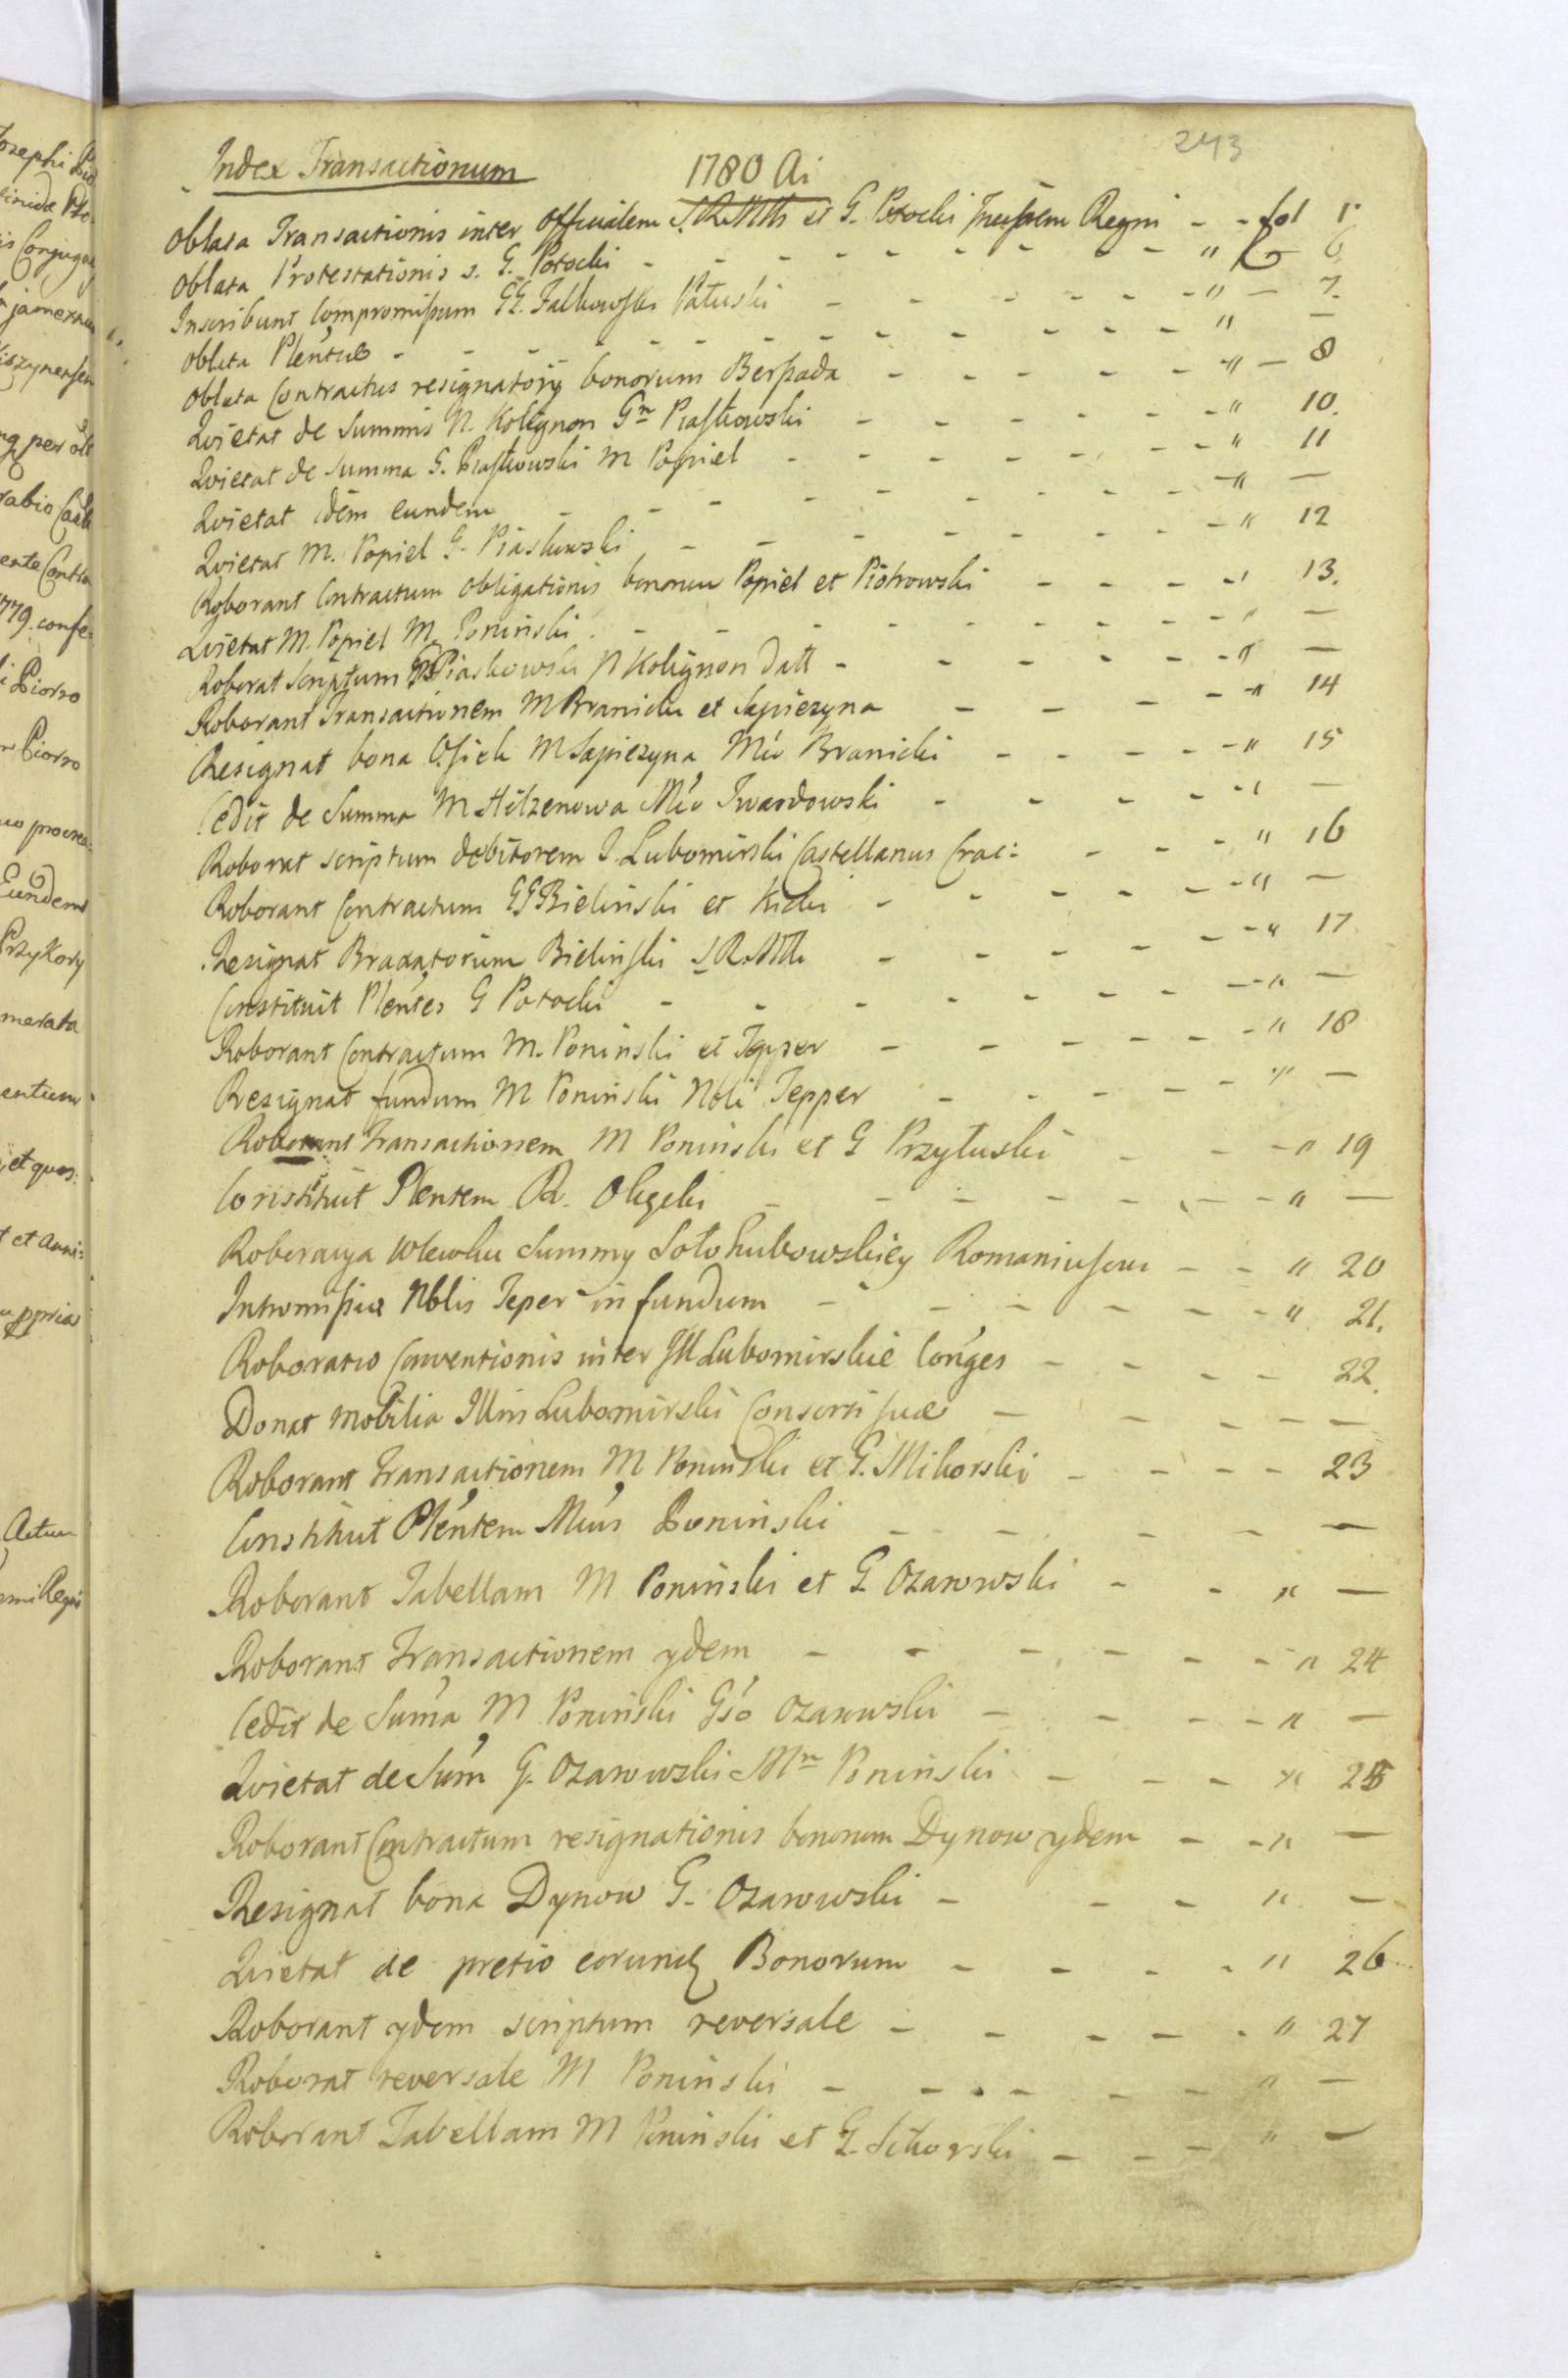 243
Index Transactionum 1780 Ai
Oblata Transactionis inter Officialem S.R.Mtis et G. Potocki Regni - - fol 1.
Oblata Protestationis s. G. Potocki - - - - - - - " 6.
Inscribunt Compromissum GG. Falkowski Patuski - - - - - - " - 7.
Oblata Plentiae - - - - - - - - - " —
Oblata Contractus resignatorii bonorum Berszada - - - - - " - 8
Quietat de Summis N. Kolignon Gn Piaskowski - - - - - " 10.
Quietat de Summa G. Piaskowski M Popiel - - - - - - " 11
Quietat idem eundem - - - - - - - - " —
Quietat M. Popiel G. Piaskowski - - - - - - - " 12
Roborant Contractum obligationis bonorum Popiel et Piotrowski - - - - " 13.
Quietat M. Popiel M. Poninski - - - - - - - " —
Roborat scriptum G Piaskowski N Kolignon Datt - - - - - " —
Roborant Transactionem M Branicki et Sapiezyna - - - - " 14
Resignat bona Osiek M Sapiezyna Mco Branicki - - - - " 15
Cedit de Summa M Hilzenowa Mco Twardowski - - - - " —
Roborat scriptum debitorem J. Lubomirski Castellanus Crac: - - - " 16
Roborant Contractum GG Bielinski et Kicki - - - - - " —
Resignat Braxatorium Bielinski S.R.Mti - - - - - " 17
Constituit Plentes G Potocki - - - - - - - " —
Roborant Contractum M. Poninski et Tepper - - - - - " 18
Resignat fundum M Poninski Nbli Tepper - - - - - " —
Roborant Transactionem M Poninski et G Przyłuski - - - " 19
Constituit Plentem R. Oligeki - - - - - - - " —
Roboracya wlewku Summy Sołohubowskiey - - " 20
Intromissia Nblis Teper in fundum - - - - - - " 21.
Roboratio Conventionis inter Ill Lubomirskie Conges - - - - 22.
Donat mobilia Illm Lubomirski Consorti suae - - - - —
Roborant Transactionem M Poninski et G. Mikorski - - - - 23
Constituit Plentem Mcus Poninski - - - - —
Roborant Tabellam M Poninski et G Ozarowski - - " —
Roborant Transactionem ydem - - - - - - " 24
Cedit de Suma M Poninski Gso Ozarowski - - - - " —
Quietat de Sum G. Ozarowski Mn Poninski - - - " 25
Roborant Contractum resignationis bonorum Dynow ydem - - " —
Resignat bona Dynow G. Ozarowski - - - " —
Quietat de pretio eorund Bonorum - - - - " 26
Roborant ydem scriptum reversale - - - - - " 27
Roborat reversale M Poninski - - - - - " —
Roborant Tabellam M Poninski et G. Sikorski - - - " —